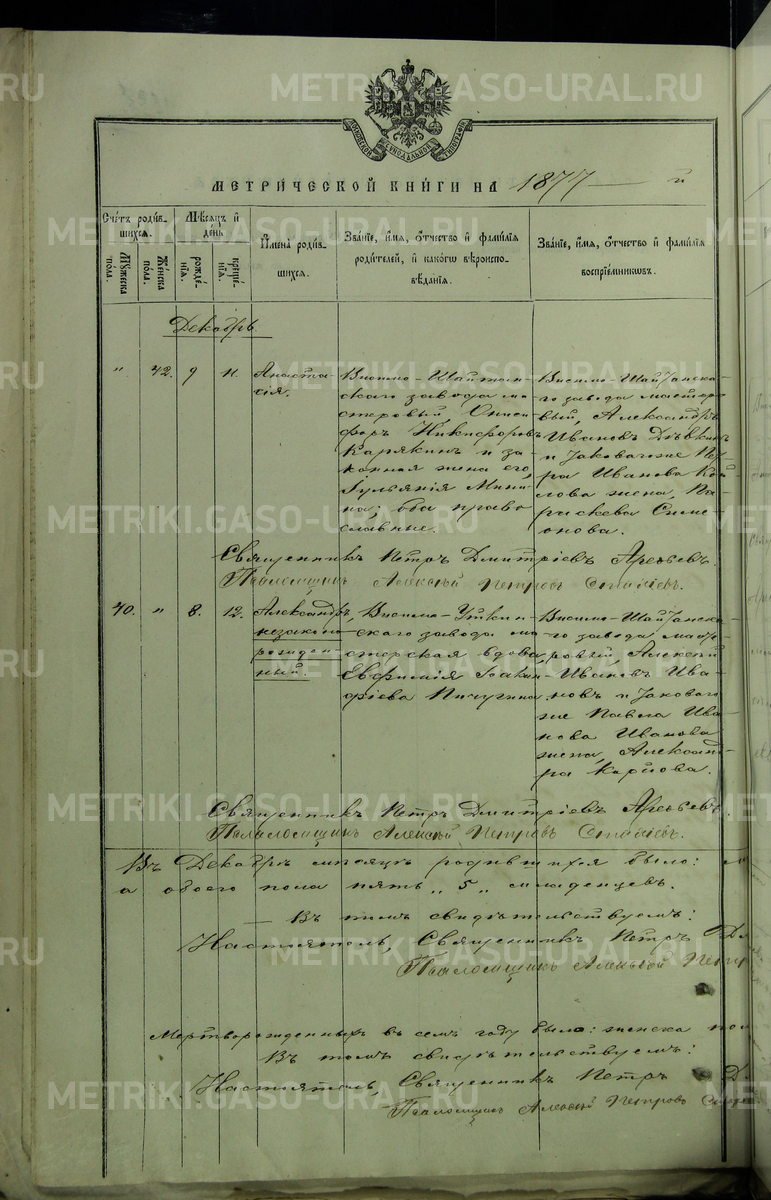 МЕТРИЧЕСКОЙ КНИГИ НА 1877 й
Счетъ родив-
шихся.
Мужеска пола.
Женска пола.
Мѣсяцъ и день
рожде-
нія.
креще-
нія.
Имена родив-
шихся.
Званіе, имя, отчество и фамилія
родителей, и какого вѣроиспо-
вѣданія.
Званіе, имя, отчество и фамилія
воспріемниковъ.
Декабрь
„ 42. 9 11.
Анаста-
сія.
Висимо-Шайтан-
скаго завода ма-
стеровый Ониси-
форъ Никифоровъ
Карякинъ и за-
конная жена его,
Іульянія Мини-
на; оба право-
славные.
Висимо-Шайтанска-
го завода мастеро-
вый, Александръ
Ивановъ Дѣвкинъ
и таковаго же Пет-
ра Иванова
жена, Па-
раскева Симе-
онова.
Священникъ Петръ Димитріевъ Арефьевъ.
Псаломщикъ Алексѣй Петровъ
40. „ 8. 12.
Александръ,
незаконно-
рожден-
ный.
Висимо-Уткин-
скаго завода ма-
стерская вдова,
Евфимія Іоакин-
фіева Пичугина.
Висимо-Шайтанска-
го завода масте-
ровый, Алексѣй
Ивановъ Ива-
новъ и таковаго
же Павла Ива-
нова Иванова
жена, Александ-
ра Карпова.
Священникъ Петръ Димитріевъ Арефьевъ.
Псаломщикъ Алексѣй Петровъ
Въ Декабрѣ мѣсяцѣ родившихся было: м
а обоего пола пять „5„ младенцевъ.
Въ томъ свидѣтельствуемъ:
Настоятель, Священникъ Петръ Ди
Псаломщикъ Алексѣй Петр
Мертворожденныхъ въ семъ году было: женска пол
Въ томъ свидѣтельствуемъ:
Настоятель, Священникъ Петръ Ди
Псаломщикъ Алексѣй Петровъ
METRIKI.GASO-URAL.RU